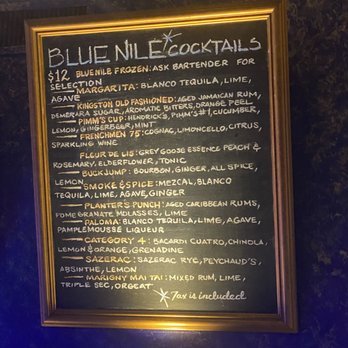 BLUE NILE COCKTAILS
$12 BLUE NILE FROZEN: ASK BARTENDER FOR
SELECTION
MARGARITA: BLANCO TEQUILA, LIME,
AGAVE
KINGSTON OLD FASHIONED: AGED JAMAICAN RUM,
DEMERARA SUGAR, AROMATIC BITTERS, ORANGE PEEL
PIMM'S CUP: HENDRICK'S, PIMM'S #1, CUCUMBER,
LEMON, GINGERBEER, MINT
FRENCHMEN 75: COGNAC, LIMONCELLO, CITRUS,
SPARKLING WINE
FLEUR DE LIS: GREY GOOSE ESSENCE PEACH &
ROSEMARY, ELDERFLOWER, TONIC
BUCKJUMP: BOURBON, GINGER, ALL SPICE,
LEMON
SMOKE & SPICE: MEZCAL, BLANCO
TEQUILA, LIME, AGAVE, GINGER
PLANTER'S PUNCH: AGED CARIBBEAN RUMS,
POMEGRANATE MOLASSES, LIME
PALOMA: BLANCO TEQUILA, LIME, AGAVE,
PAMPLEMOUSSE LIQUEUR
CATEGORY 4: BACARDI CUATRO, CHINOLA,
LEMON & ORANGE, GRENADINE
SAZERAC: SAZERAC RYE, PEYCHAUD'S,
ABSINTHE, LEMON
MARIGNY MAI TAI: MIXED RUM, LIME,
TRIPLE SEC, ORGEAT
* Tax is included